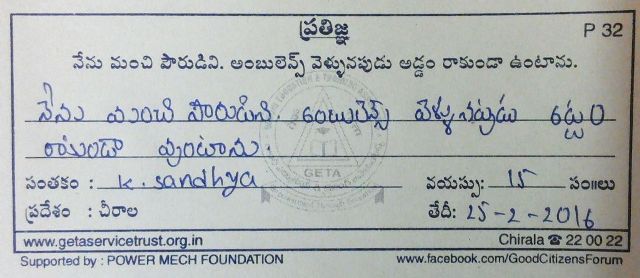 ప్రతిజ్ఞ
P 32
నేను మంచి పౌరుడిని. అంబులెన్స్ వెళ్ళునపుడు అడ్డం రాకుండా ఉంటాను.
నేను మంచి పౌరుడిని. అంబులెన్స్ వెళ్ళునపుడు అడ్డం
రాకుండా వుంటాను.
GETA
సంతకం : K. Sandhya వయస్సు: 15 సం॥లు
ప్రదేశం : చీరాల తేదీ: 25-2-2016
www.getaservicetrust.org.in Chirala ☎ 22 00 22
Supported by : POWER MECH FOUNDATION www.facebook.com/GoodCitizensForum